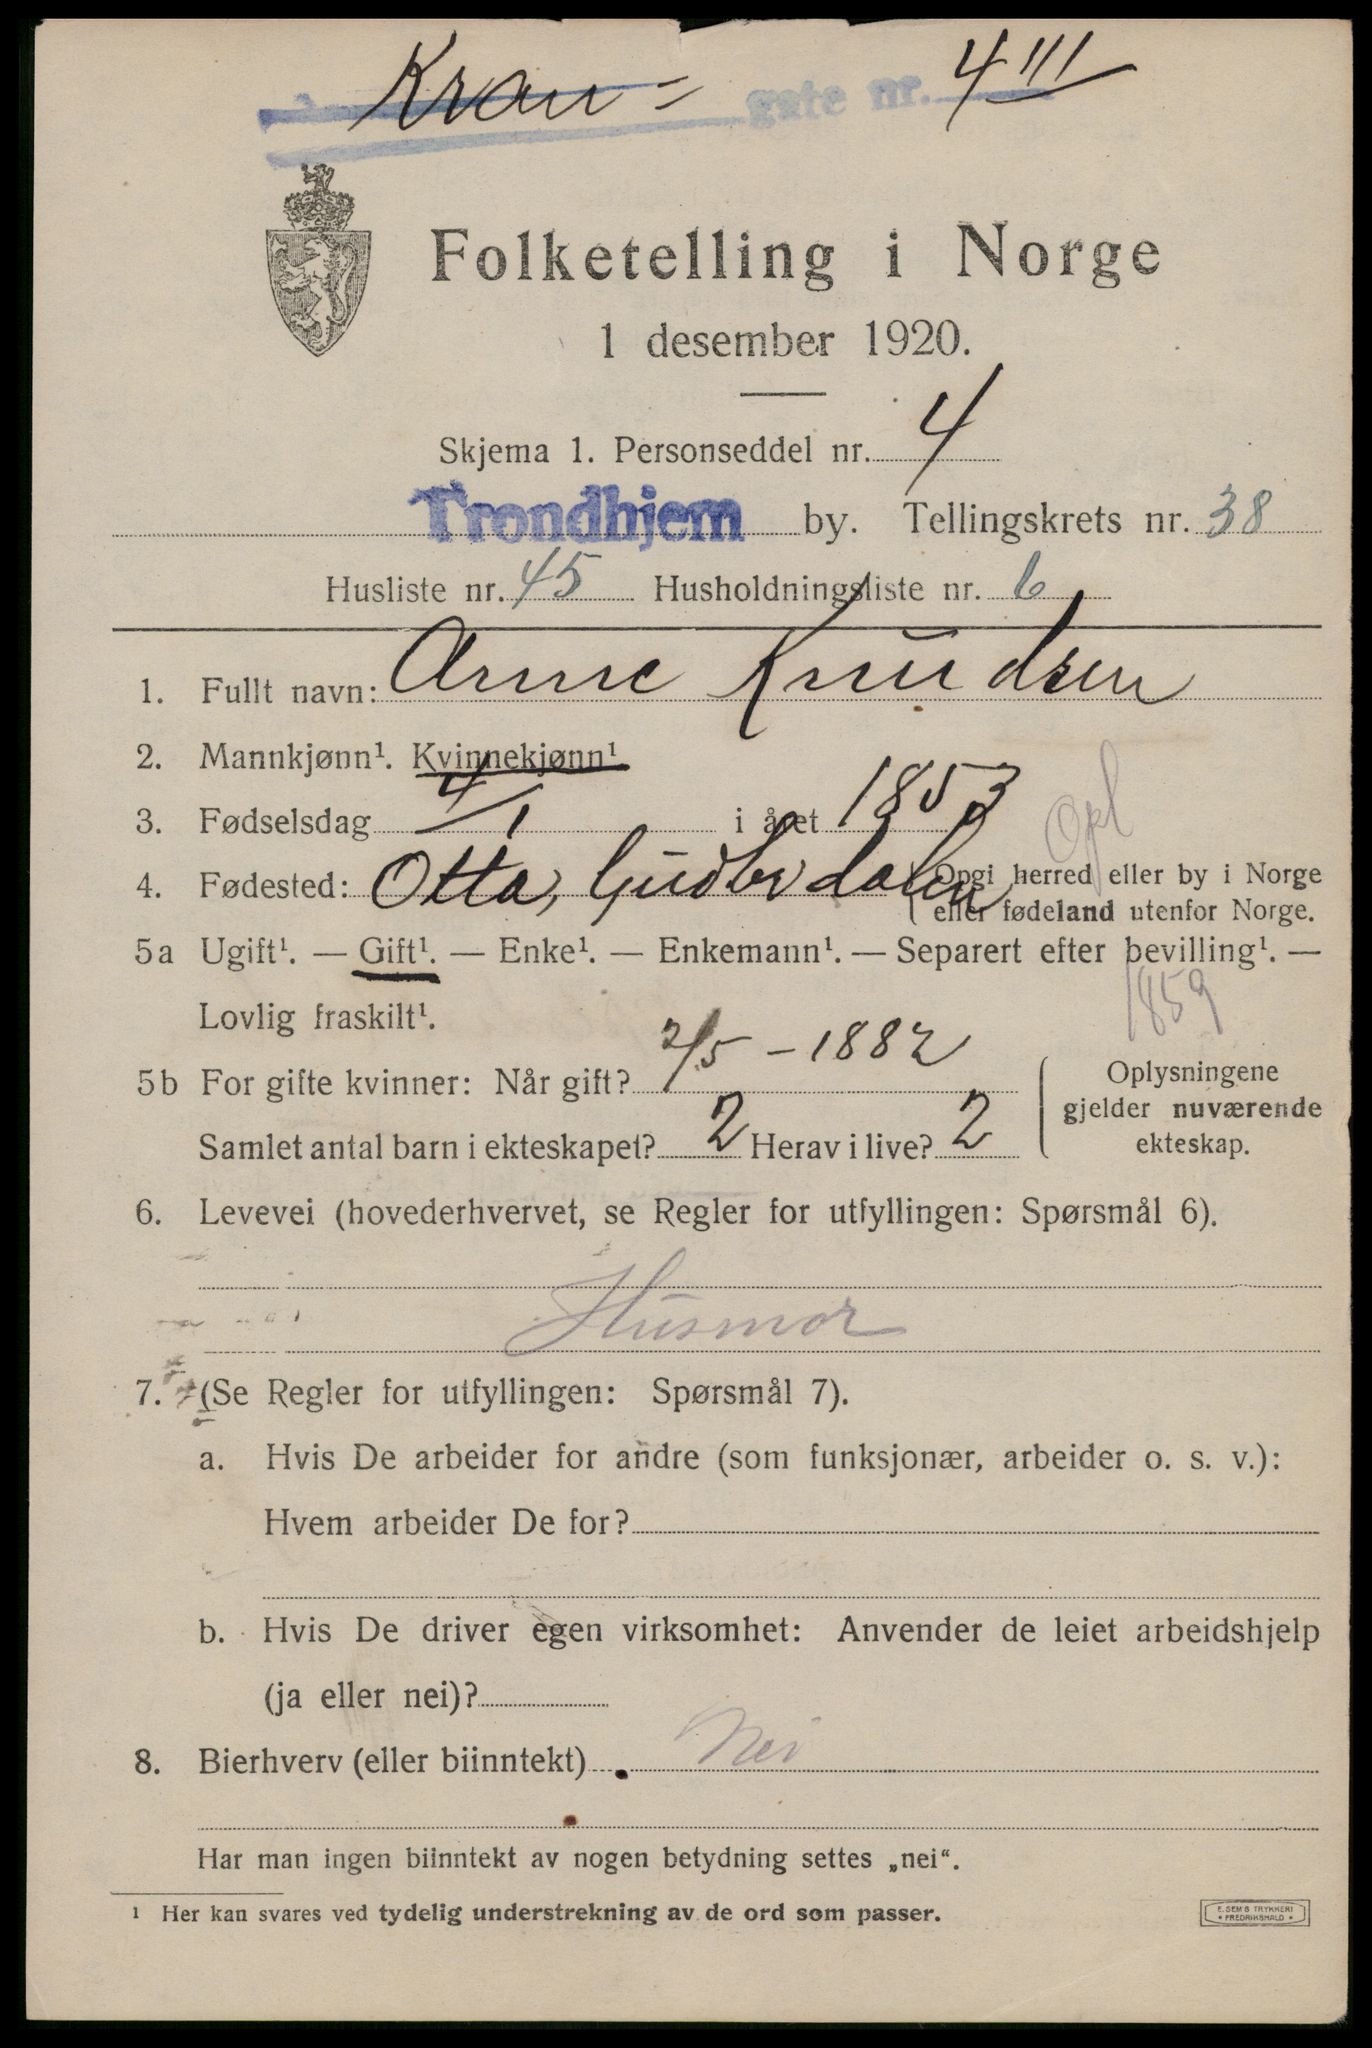 Kran= gate nr. 4 III
Folketelling i Norge
1 desember 1920.
Skjema 1. Personseddel nr. 4
Trondhjem by. Tellingskrets nr. 38
Husliste nr. 45 Husholdningsliste nr. 6
1. Fullt navn: Anne Knudsen
2. Mannkjønn¹. Kvinnekjønn¹
3. Fødselsdag 4/1 i året 1853
Opl
4. Fødested: Otta, Gudbrdalen Opgi herred eller by i Norge
eller fødeland utenfor Norge.
5a Ugift¹. — Gift¹. — Enke¹. — Enkemann¹. — Separert efter bevilling¹. —
Lovlig fraskilt¹.
1859
5b For gifte kvinner: Når gift? 2/5 - 1882
Samlet antal barn i ekteskapet? 2 Herav i live? 2
Oplysningene
gjelder nuværende
ekteskap.
6. Levevei (hovederhvervet, se Regler for utfyllingen: Spørsmål 6).
Husmor
7. (Se Regler for utfyllingen: Spørsmål 7).
a. Hvis De arbeider for andre (som funksjonær, arbeider o. s. v.):
Hvem arbeider De for?
b. Hvis De driver egen virksomhet: Anvender de leiet arbeidshjelp
(ja eller nei)?
8. Bierhverv (eller biinntekt) Nei
Har man ingen biinntekt av nogen betydning settes „nei“.
1 Her kan svares ved tydelig understrekning av de ord som passer.
E. SEM'S TRYKKERI
* FREDRIKSHALD *